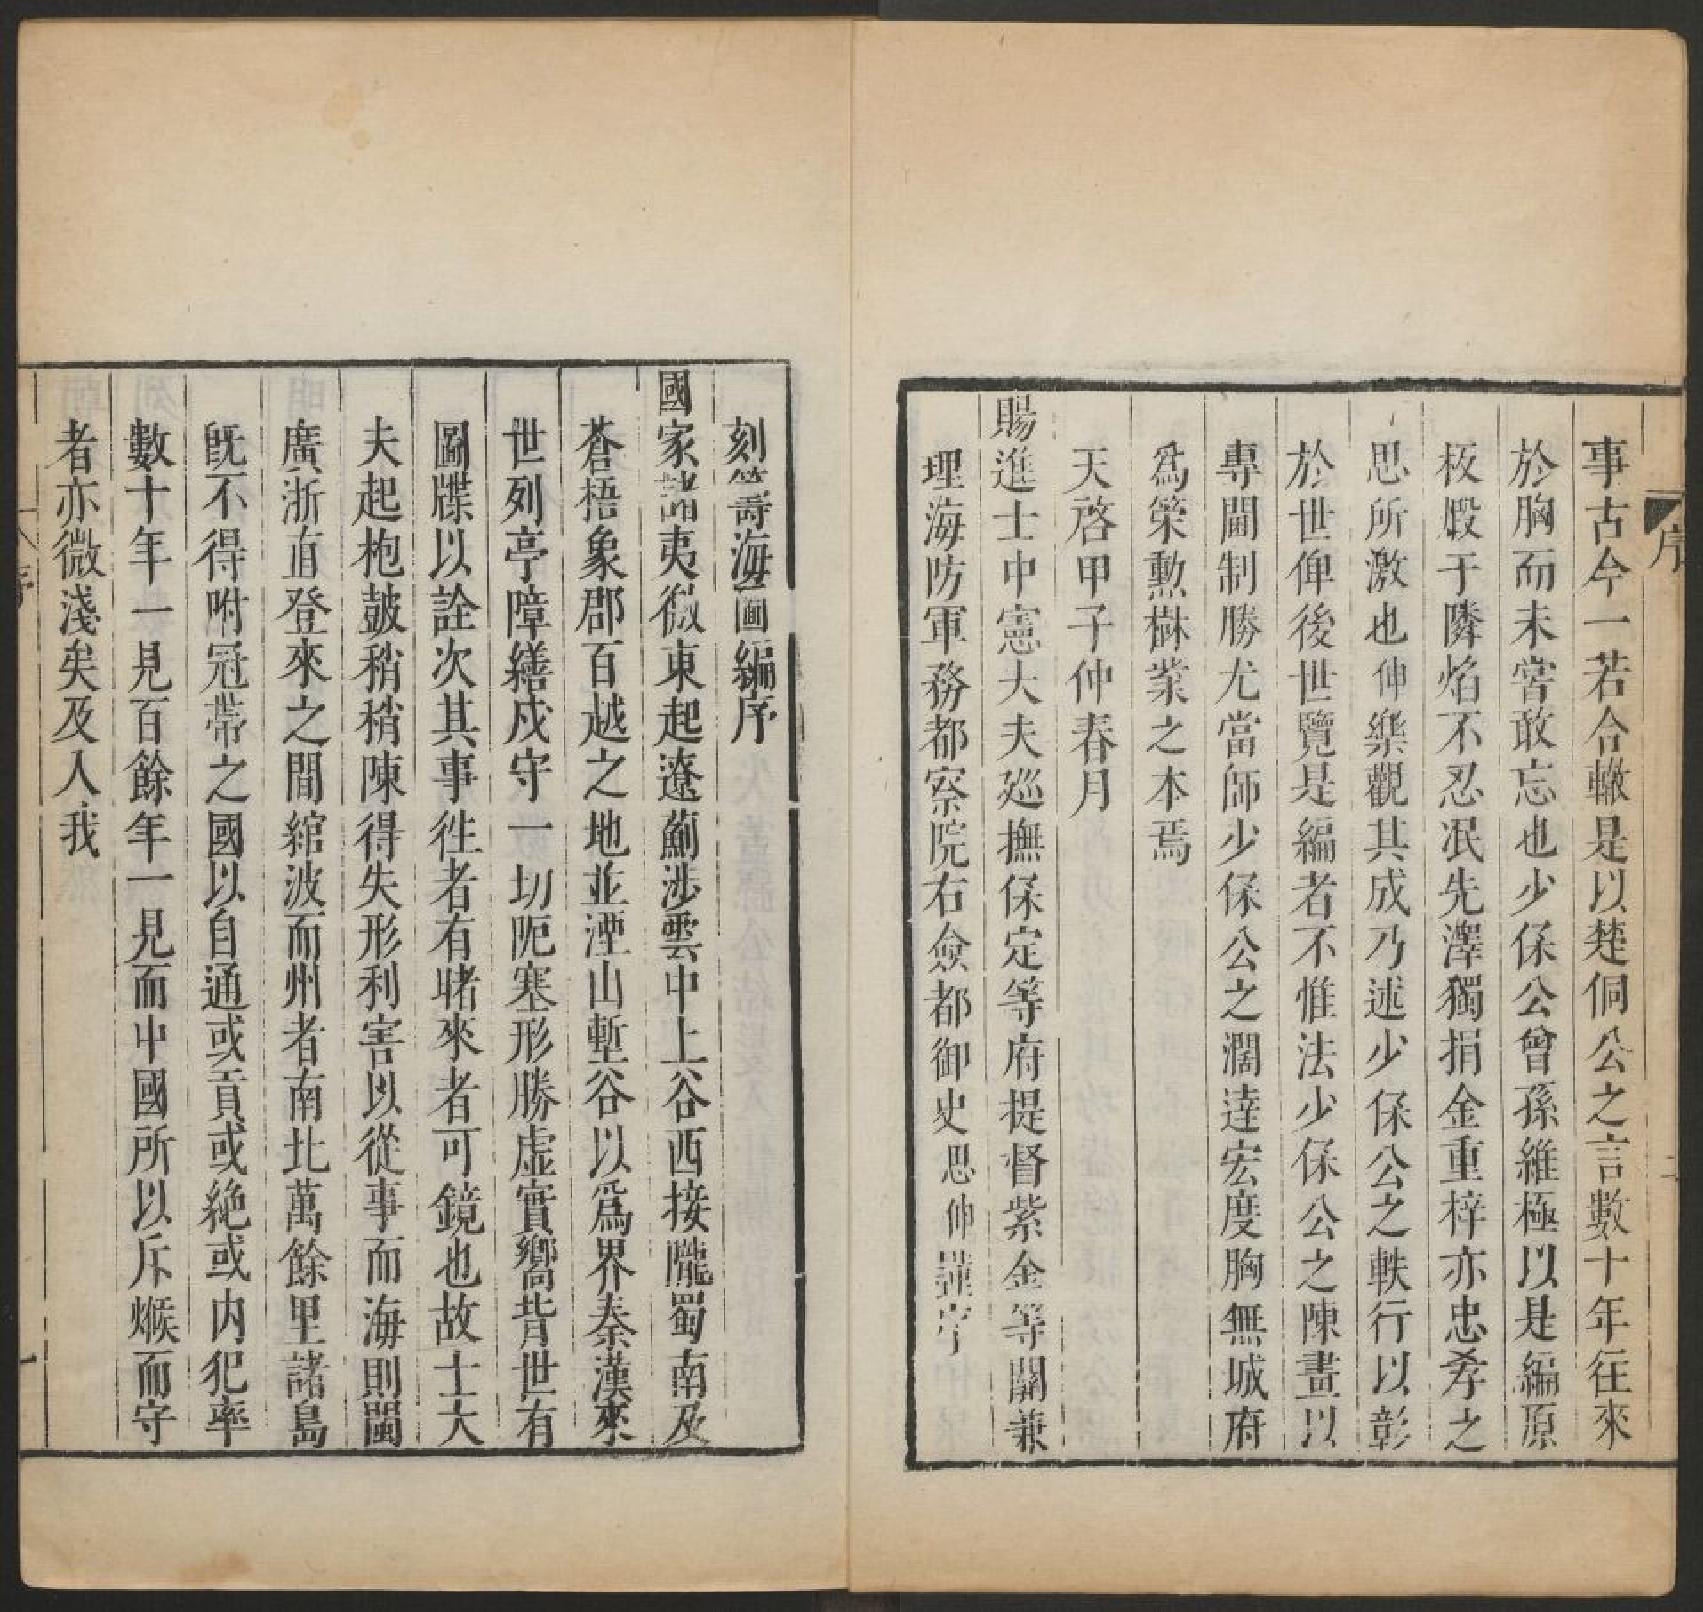 序
事古今一若合轍是以楚侗公之言數十年往來
於胸而未嘗敢忘也少保公曾孫維極以是編原
板燬于隣焰不忍泯先澤獨捐金重梓亦忠孝之
思所激也伸樂觀其成乃述少保公之軼行以彰
於世俾後世覽是編者不惟法少保公之陳畫以
專閫制勝尤當師少保公之濶達宏度胸無城府
爲策勳樹業之本焉
天啓甲子仲春月
賜進士中憲大夫廵撫保定等府提督紫金等關兼
理海防軍務都察院右僉都御史思伸謹序
刻籌海圖編序
國家諸夷徼東起遼薊涉雲中上谷西接隴蜀南及
蒼梧象郡百越之地並湮山塹谷以爲界秦漢來
世列亭障繕戍守一切阨塞形勝虛實嚮背世有
圖牒以詮次其事徃者有睹來者可鏡也故士大
夫起枹鼓稍稍陳得失形利害以從事而海則閩
廣浙直登來之間綰波而州者南北萬餘里諸島
旣不得附冠帶之國以自通或貢或絶或内犯率
數十年一見百餘年一見而中國所以斥堠而守
者亦微淺矣及入我
序